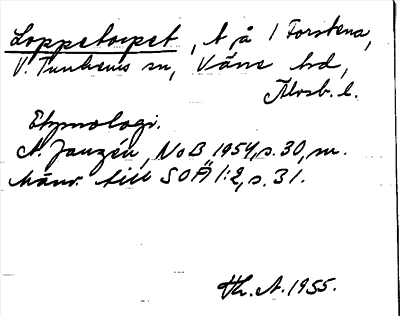 Loppetorpet, t. på / Forstena,
V. Tunhems sn, Väne hd,
Älvsb. l.
Etymologi.
A. Janzén, NoB 1954, s. 30, m.
hänv. till SOÄ 1:2, s. 31.
Hr. A. 1955.